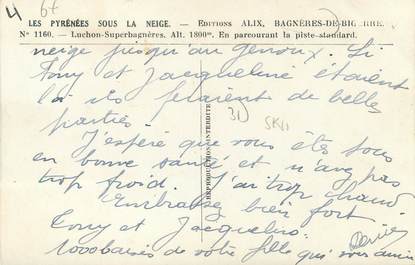 4 67
LES PYRÉNÉES SOUS LA NEIGE. — Éditions ALIX, BAGNÈRES-DE-BIGORRE.
N° 1160. — Luchon-Superbagnères. Alt. 1800m. En parcourant la piste-standard.
neige jusqu'au genoux. Si
Tony et Jacqueline étaient
là ils feraient de belles
parties.
31 SKII
J'espère que vous êtes tous
en bonne santé et n'avez pas
trop froid. J'ai trop chaud
REPRODUCTION INTERDITE
Embrassez bien fort
Tony et Jacqueline.
1000 baisers de votre fille qui vous aime
Denise